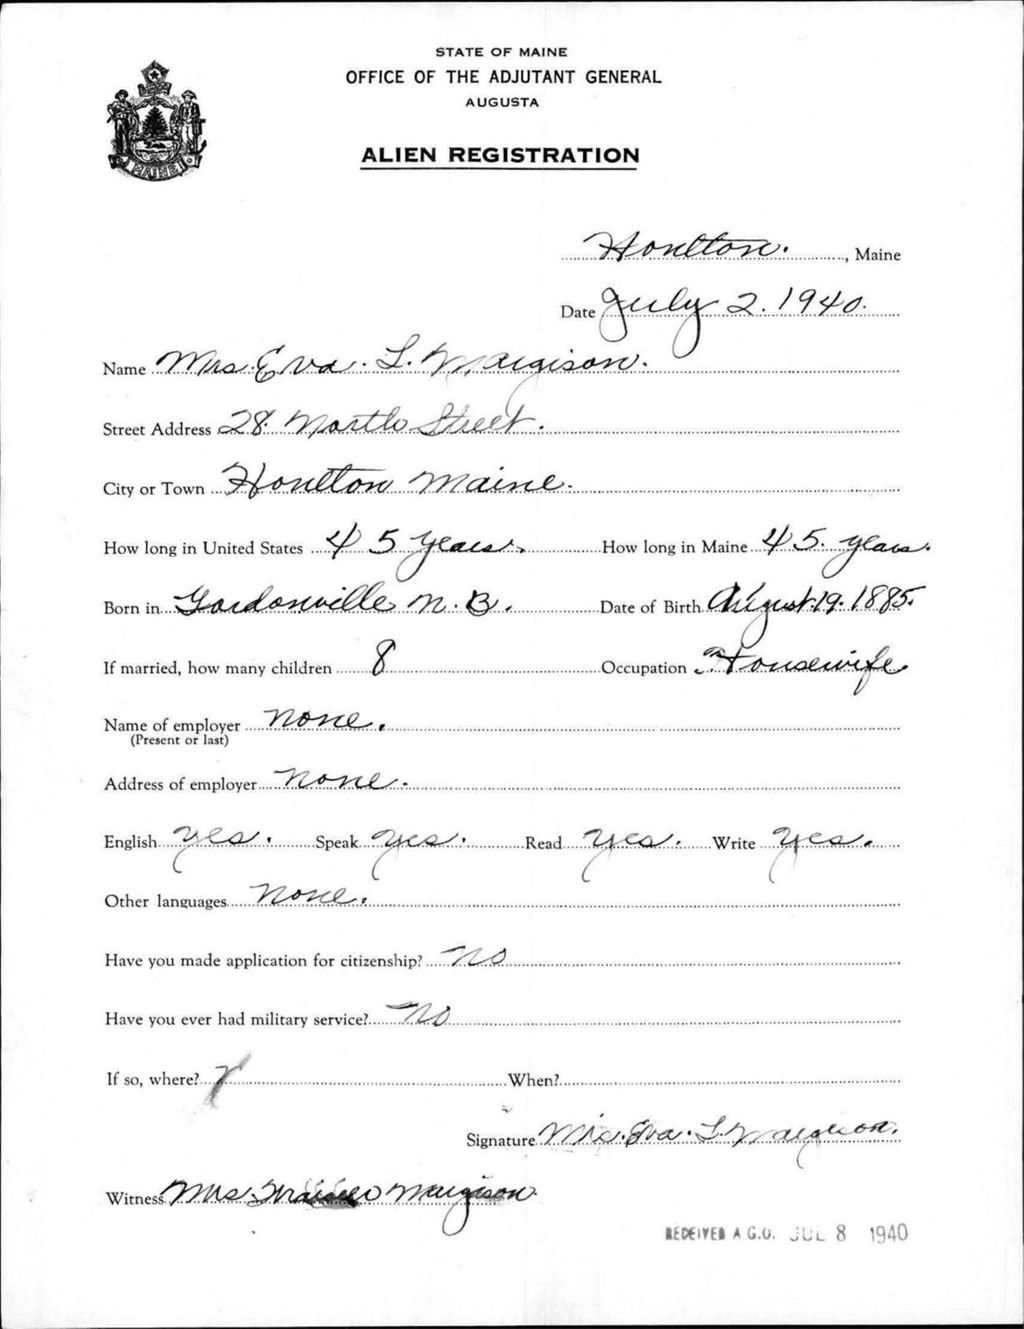 STATE OF MAINE
OFFICE OF THE ADJUTANT GENERAL
AUGUSTA
ALIEN REGISTRATION
MAINE
Houlton., Maine
Date July 2. 1940.
Name Mrs. Eva. L. Margison.
Street Address 28. North Street.
City or Town Houlton Maine.
How long in United States 45 years. How long in Maine 45. years.
Born in Gordonville N.B. Date of Birth August. 19. 1885.
If married, how many children 8 Occupation Housewife.
Name of employer none.
(Present or last)
Address of employer none.
English yes. Speak yes. Read yes. Write yes.
Other languages None.
Have you made application for citizenship? No
Have you ever had military service? No
If so, where? When?
Signature Mrs. Eva. L. Margison.
Witness Mrs Margison
RECEIVED A.G.O. JUL 8 1940